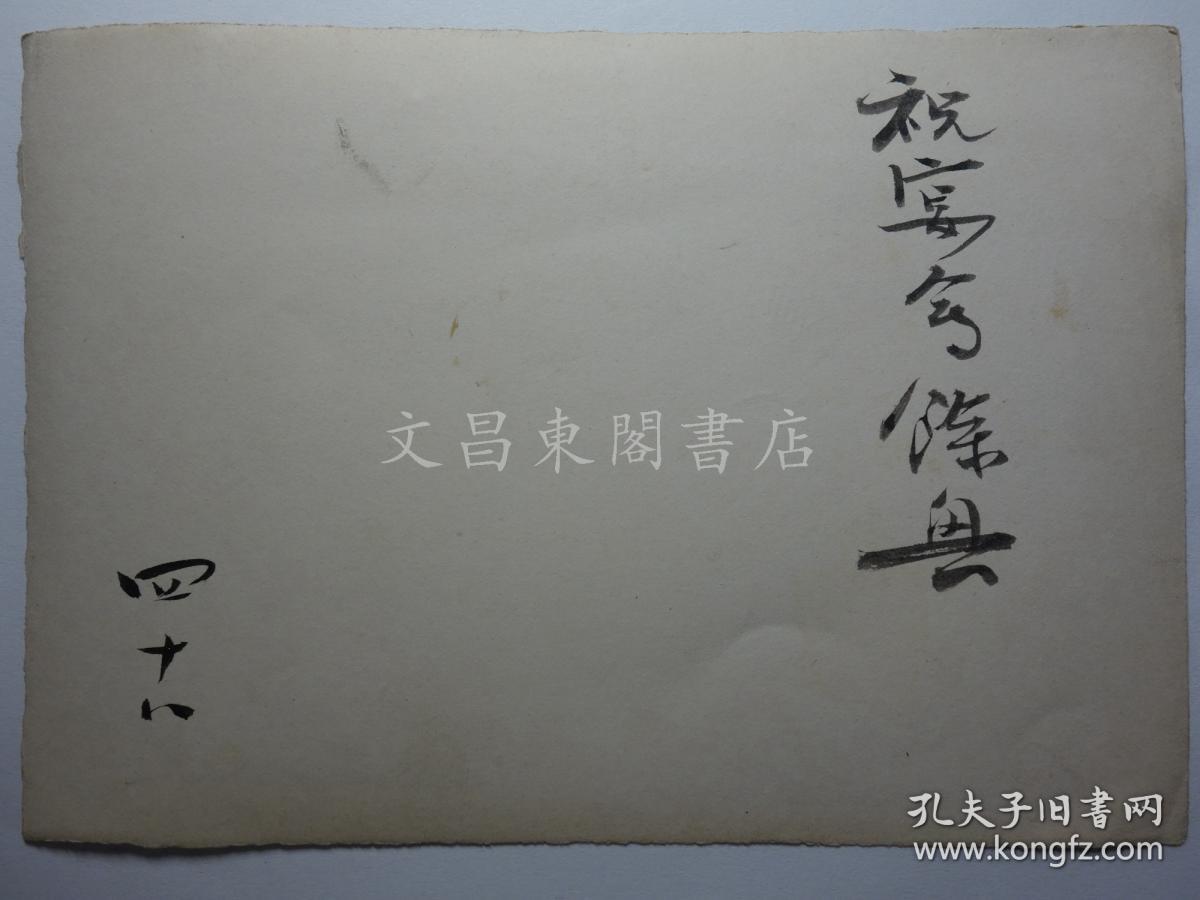 祝宴会餘興
四十八
文昌東閣書店
孔夫子旧书网
www.kongfz.com